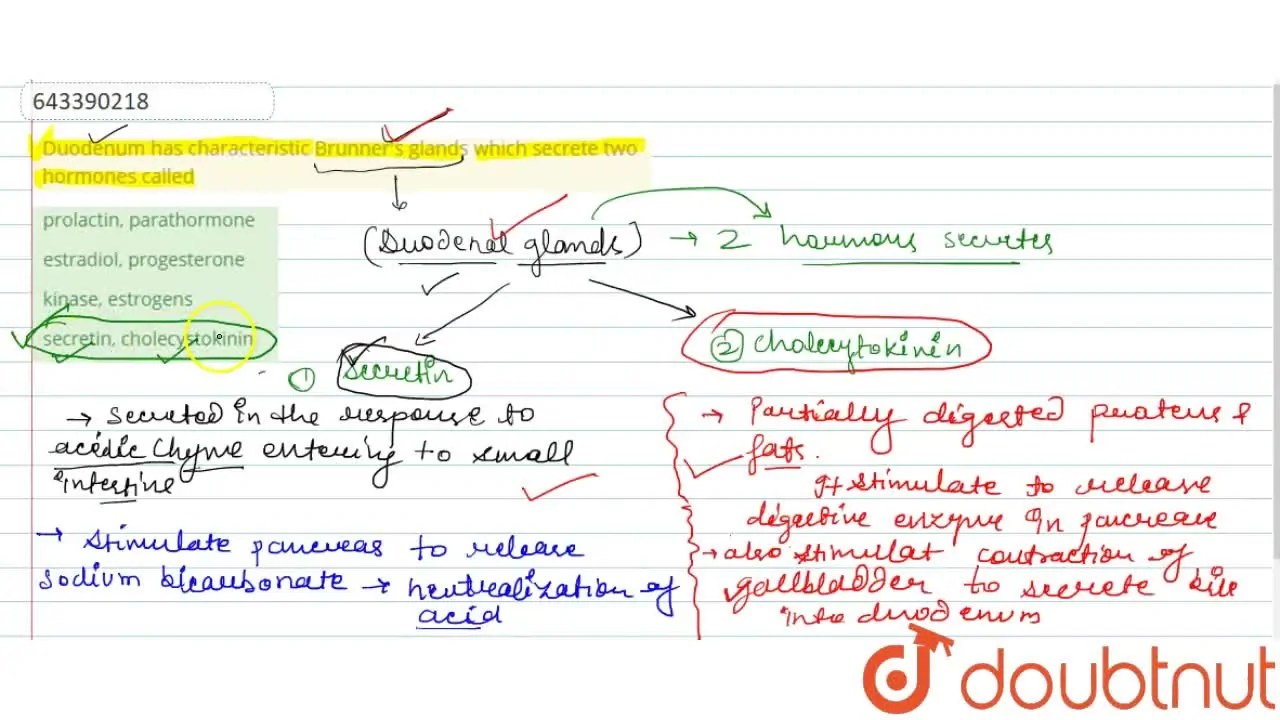 643390218
Duodenum has characteristic Brunner's glands which secrete two
hormones called
prolactin, parathormone
estradiol, progesterone
kinase, estrogens
secretin, cholecystokinin
(Duodenal glands) → 2 hormones secretes
① Secretin
② Cholecytokinin
→ Secreted in the response to
acidic Chyme entering to small
intestine
→ Stimulate pancreas to release
sodium bicarbonate → neutrealization of
acid
→ Partially digested proteins &
fats.
It stimulate to release
digestive enzyme in pancreas
→ also stimulat contraction of
gallbladder to secrete bile
into duodenum
doubtnut